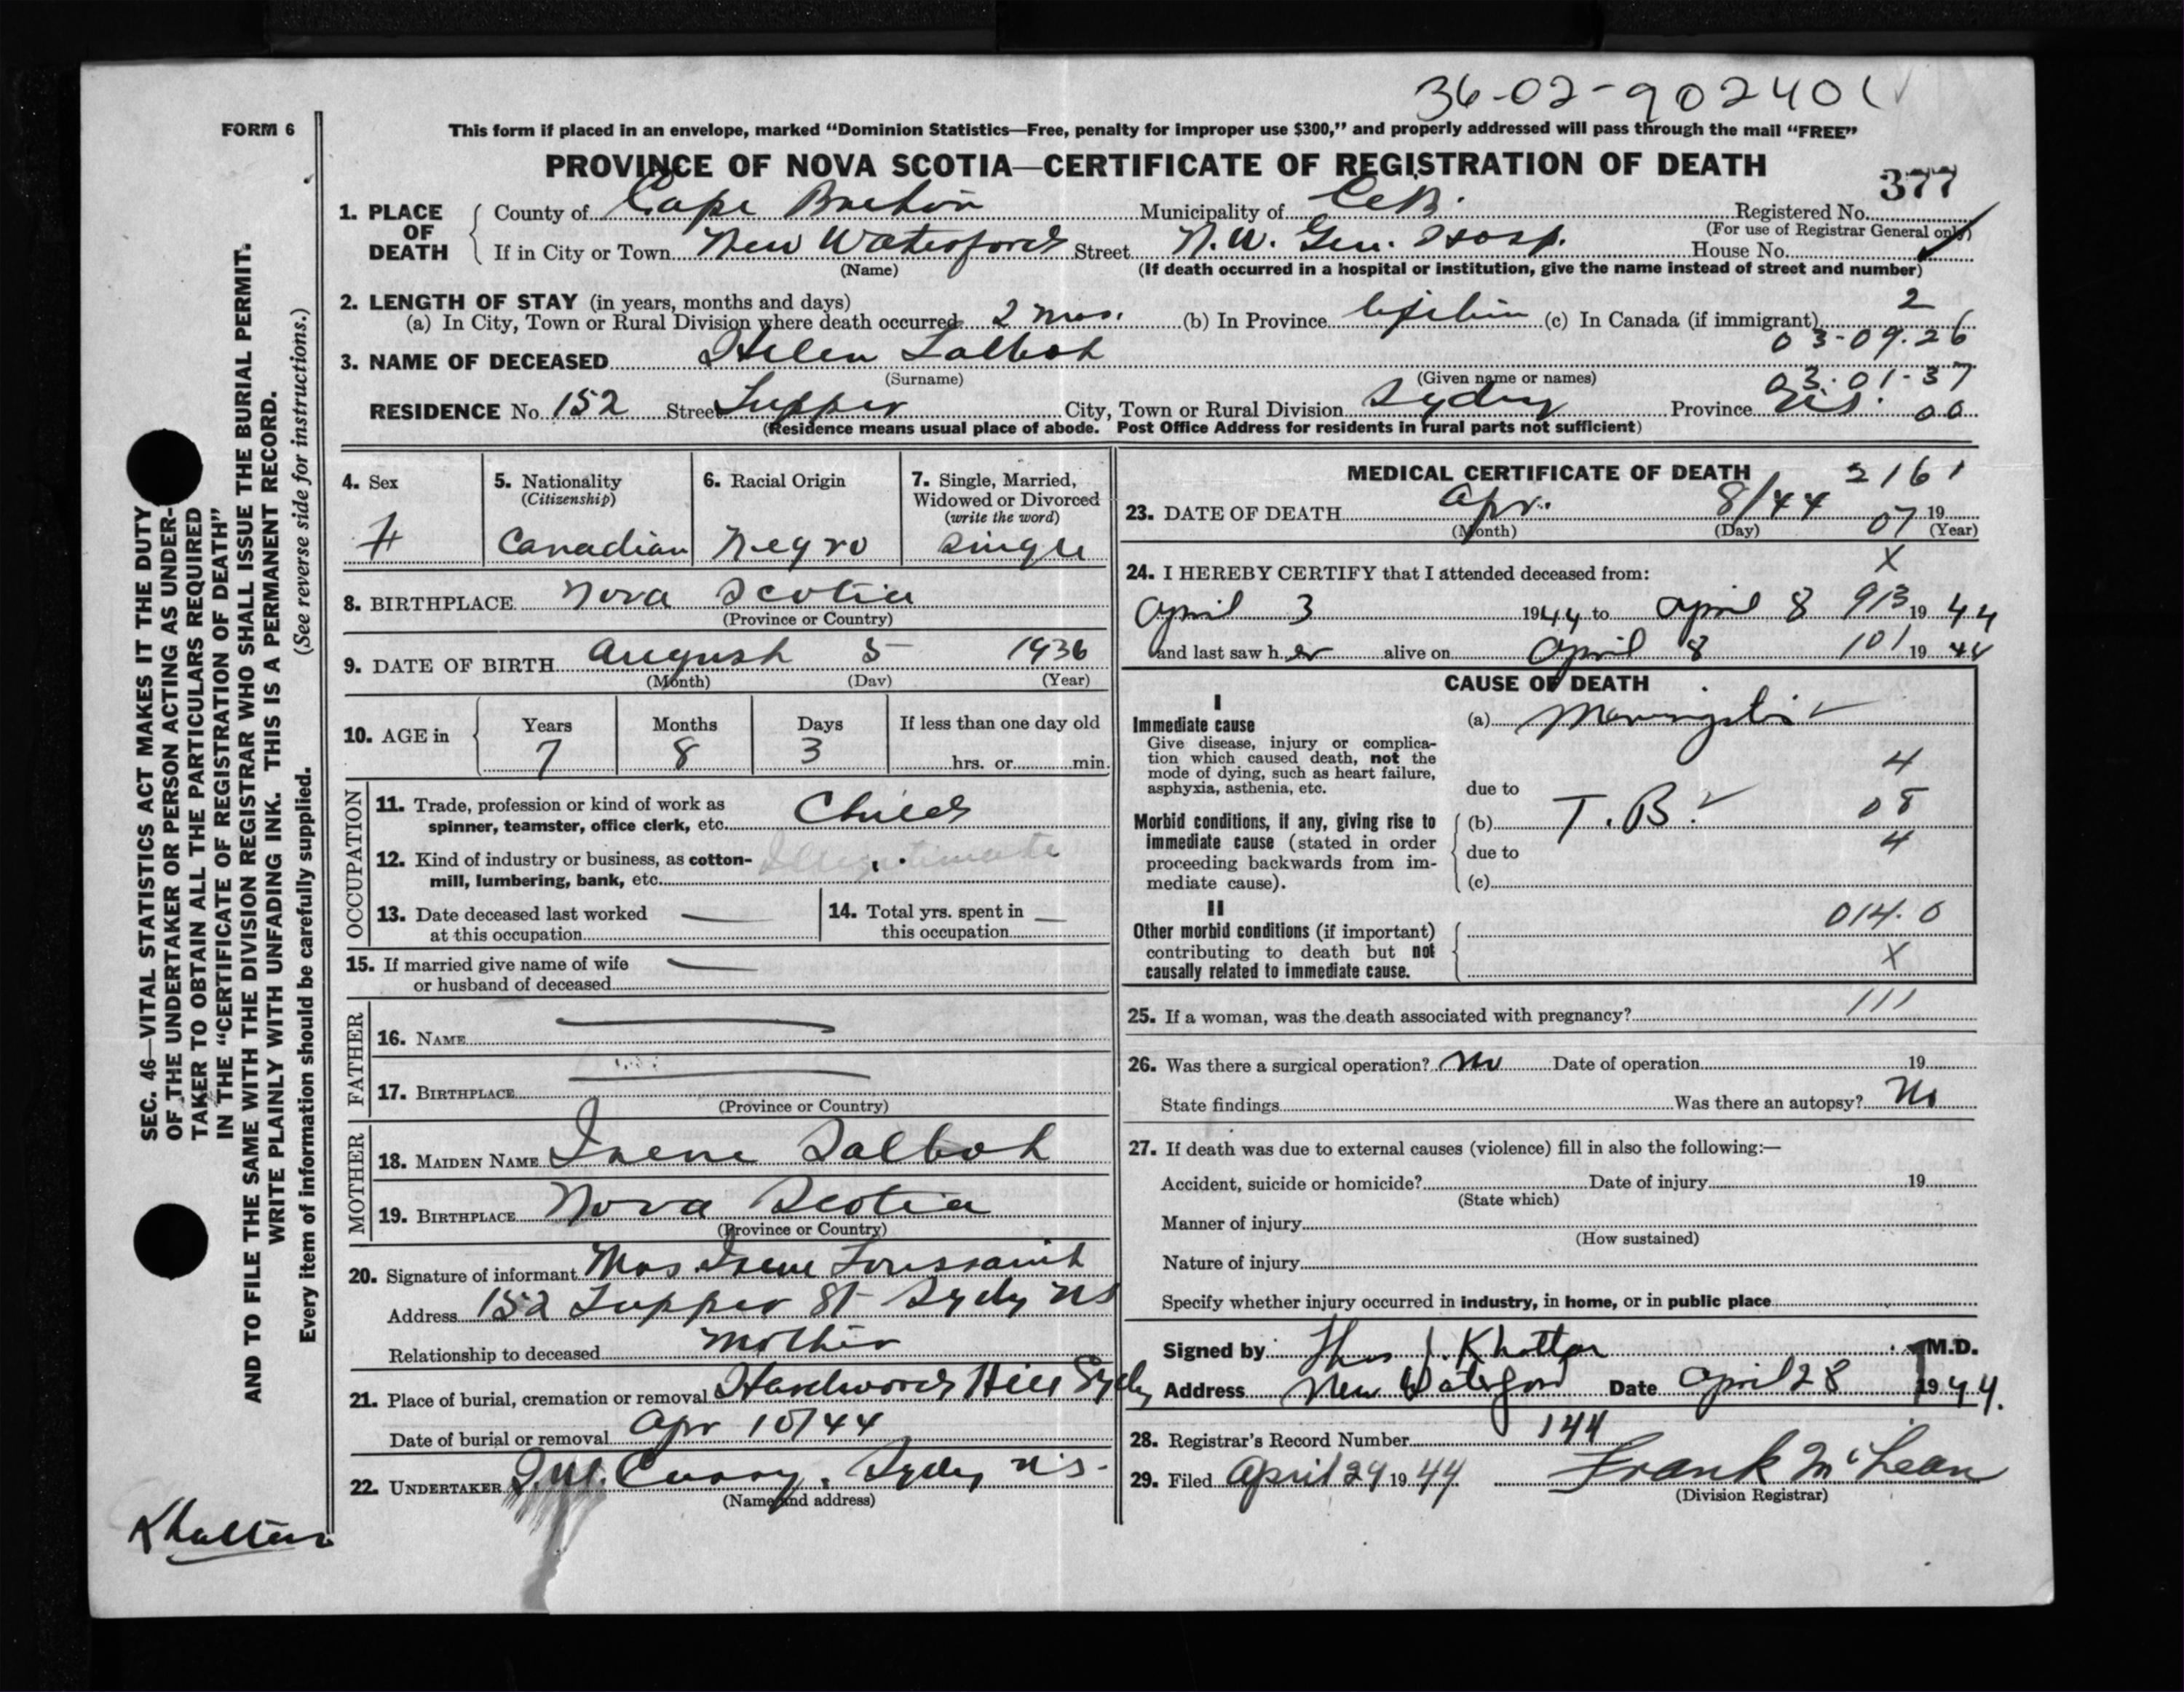 36-02-902401
FORM 6
This form if placed in an envelope, marked "Dominion Statistics—Free, penalty for improper use $300," and properly addressed will pass through the mail "FREE"
PROVINCE OF NOVA SCOTIA—CERTIFICATE OF REGISTRATION OF DEATH
377
1. PLACE OF DEATH
County of Cape Breton Municipality of C.B. Registered No.
(For use of Registrar General only)
If in City or Town New Waterford Street N.W. Gen. Hosp. House No.
(Name) (If death occurred in a hospital or institution, give the name instead of street and number)
2. LENGTH OF STAY (in years, months and days) 2
(a) In City, Town or Rural Division where death occurred 2 mos. (b) In Province lifetime (c) In Canada (if immigrant)
03-09.26
3. NAME OF DECEASED Helen Talbot
(Surname) (Given name or names)
03-01-37
RESIDENCE No. 152 Street Tupper City, Town or Rural Division Sydney Province 00
(Residence means usual place of abode. Post Office Address for residents in rural parts not sufficient)
4. Sex F
5. Nationality (Citizenship) Canadian
6. Racial Origin Negro
7. Single, Married, Widowed or Divorced (write the word) Single
8. BIRTHPLACE Nova Scotia
(Province or Country)
9. DATE OF BIRTH August 5 1936
(Month) (Day) (Year)
10. AGE in Years 7 Months 8 Days 3 If less than one day old hrs. or min.
OCCUPATION
11. Trade, profession or kind of work as spinner, teamster, office clerk, etc. Child
12. Kind of industry or business, as cotton-mill, lumbering, bank, etc. Illegitimate
13. Date deceased last worked at this occupation —
14. Total yrs. spent in this occupation —
15. If married give name of wife or husband of deceased —
FATHER
16. NAME —
17. BIRTHPLACE —
(Province or Country)
MOTHER
18. MAIDEN NAME Irene Talbot
19. BIRTHPLACE Nova Scotia
(Province or Country)
20. Signature of informant Mrs Irene Toussaint
Address 152 Tupper St Sydney NS
Relationship to deceased Mother
21. Place of burial, cremation or removal Hardwood Hill Sydney
Date of burial or removal Apr 10/44
22. UNDERTAKER Curry, Sydney N.S.
(Name and address)
MEDICAL CERTIFICATE OF DEATH 2161
23. DATE OF DEATH Apr. 8/44 07 19
(Month) (Day) (Year)
X
24. I HEREBY CERTIFY that I attended deceased from:
April 3 1944 to April 8 913 1944
and last saw her alive on April 8 101 1944
CAUSE OF DEATH
I
Immediate cause
Give disease, injury or complication which caused death, not the mode of dying, such as heart failure, asphyxia, asthenia, etc.
(a) Meningitis
4
due to
Morbid conditions, if any, giving rise to immediate cause (stated in order proceeding backwards from immediate cause).
(b) T.B. 08
due to 4
(c)
II
Other morbid conditions (if important) contributing to death but not causally related to immediate cause.
014.0
X
25. If a woman, was the death associated with pregnancy? 111
26. Was there a surgical operation? No Date of operation 19
State findings Was there an autopsy? No
27. If death was due to external causes (violence) fill in also the following:—
Accident, suicide or homicide? Date of injury 19
(State which)
Manner of injury
(How sustained)
Nature of injury
Specify whether injury occurred in industry, in home, or in public place
Signed by Thos J. Khattar M.D.
Address New Waterford Date April 28 1944.
28. Registrar's Record Number 144
29. Filed April 29 1944 Frank McLean
(Division Registrar)
SEC. 46—VITAL STATISTICS ACT MAKES IT THE DUTY
OF THE UNDERTAKER OR PERSON ACTING AS UNDER-
TAKER TO OBTAIN ALL THE PARTICULARS REQUIRED
IN THE "CERTIFICATE OF REGISTRATION OF DEATH"
AND TO FILE THE SAME WITH THE DIVISION REGISTRAR WHO SHALL ISSUE THE BURIAL PERMIT.
WRITE PLAINLY WITH UNFADING INK. THIS IS A PERMANENT RECORD.
Every item of information should be carefully supplied. (See reverse side for instructions.)
Khattar